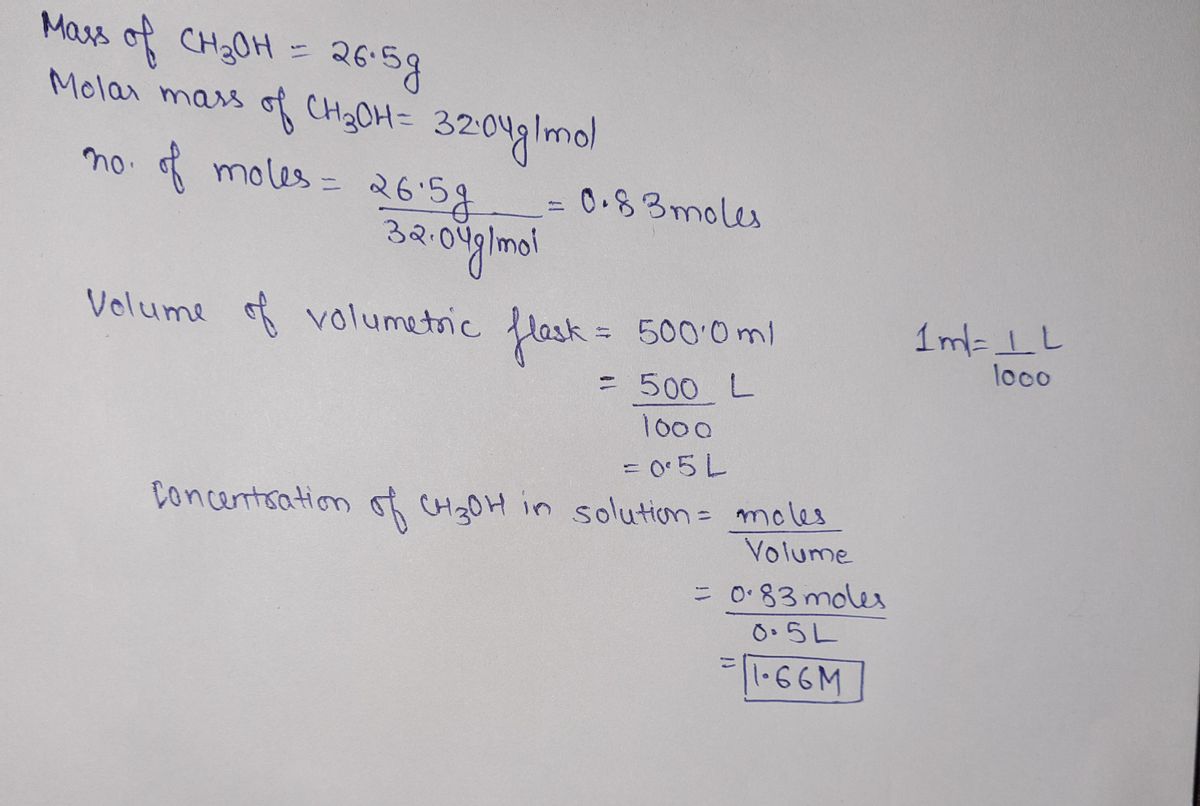 Mass of CH₃OH = 26.5g
Molar mass of CH₃OH = 32.04g/mol
no. of moles = 26.5g / 32.04g/mol = 0.83moles
Volume of volumetric flask = 500.0ml 1ml = 1/1000 L
= 500/1000 L
= 0.5L
Concentration of CH₃OH in solution = moles / Volume
= 0.83moles / 0.5L
= 1.66M